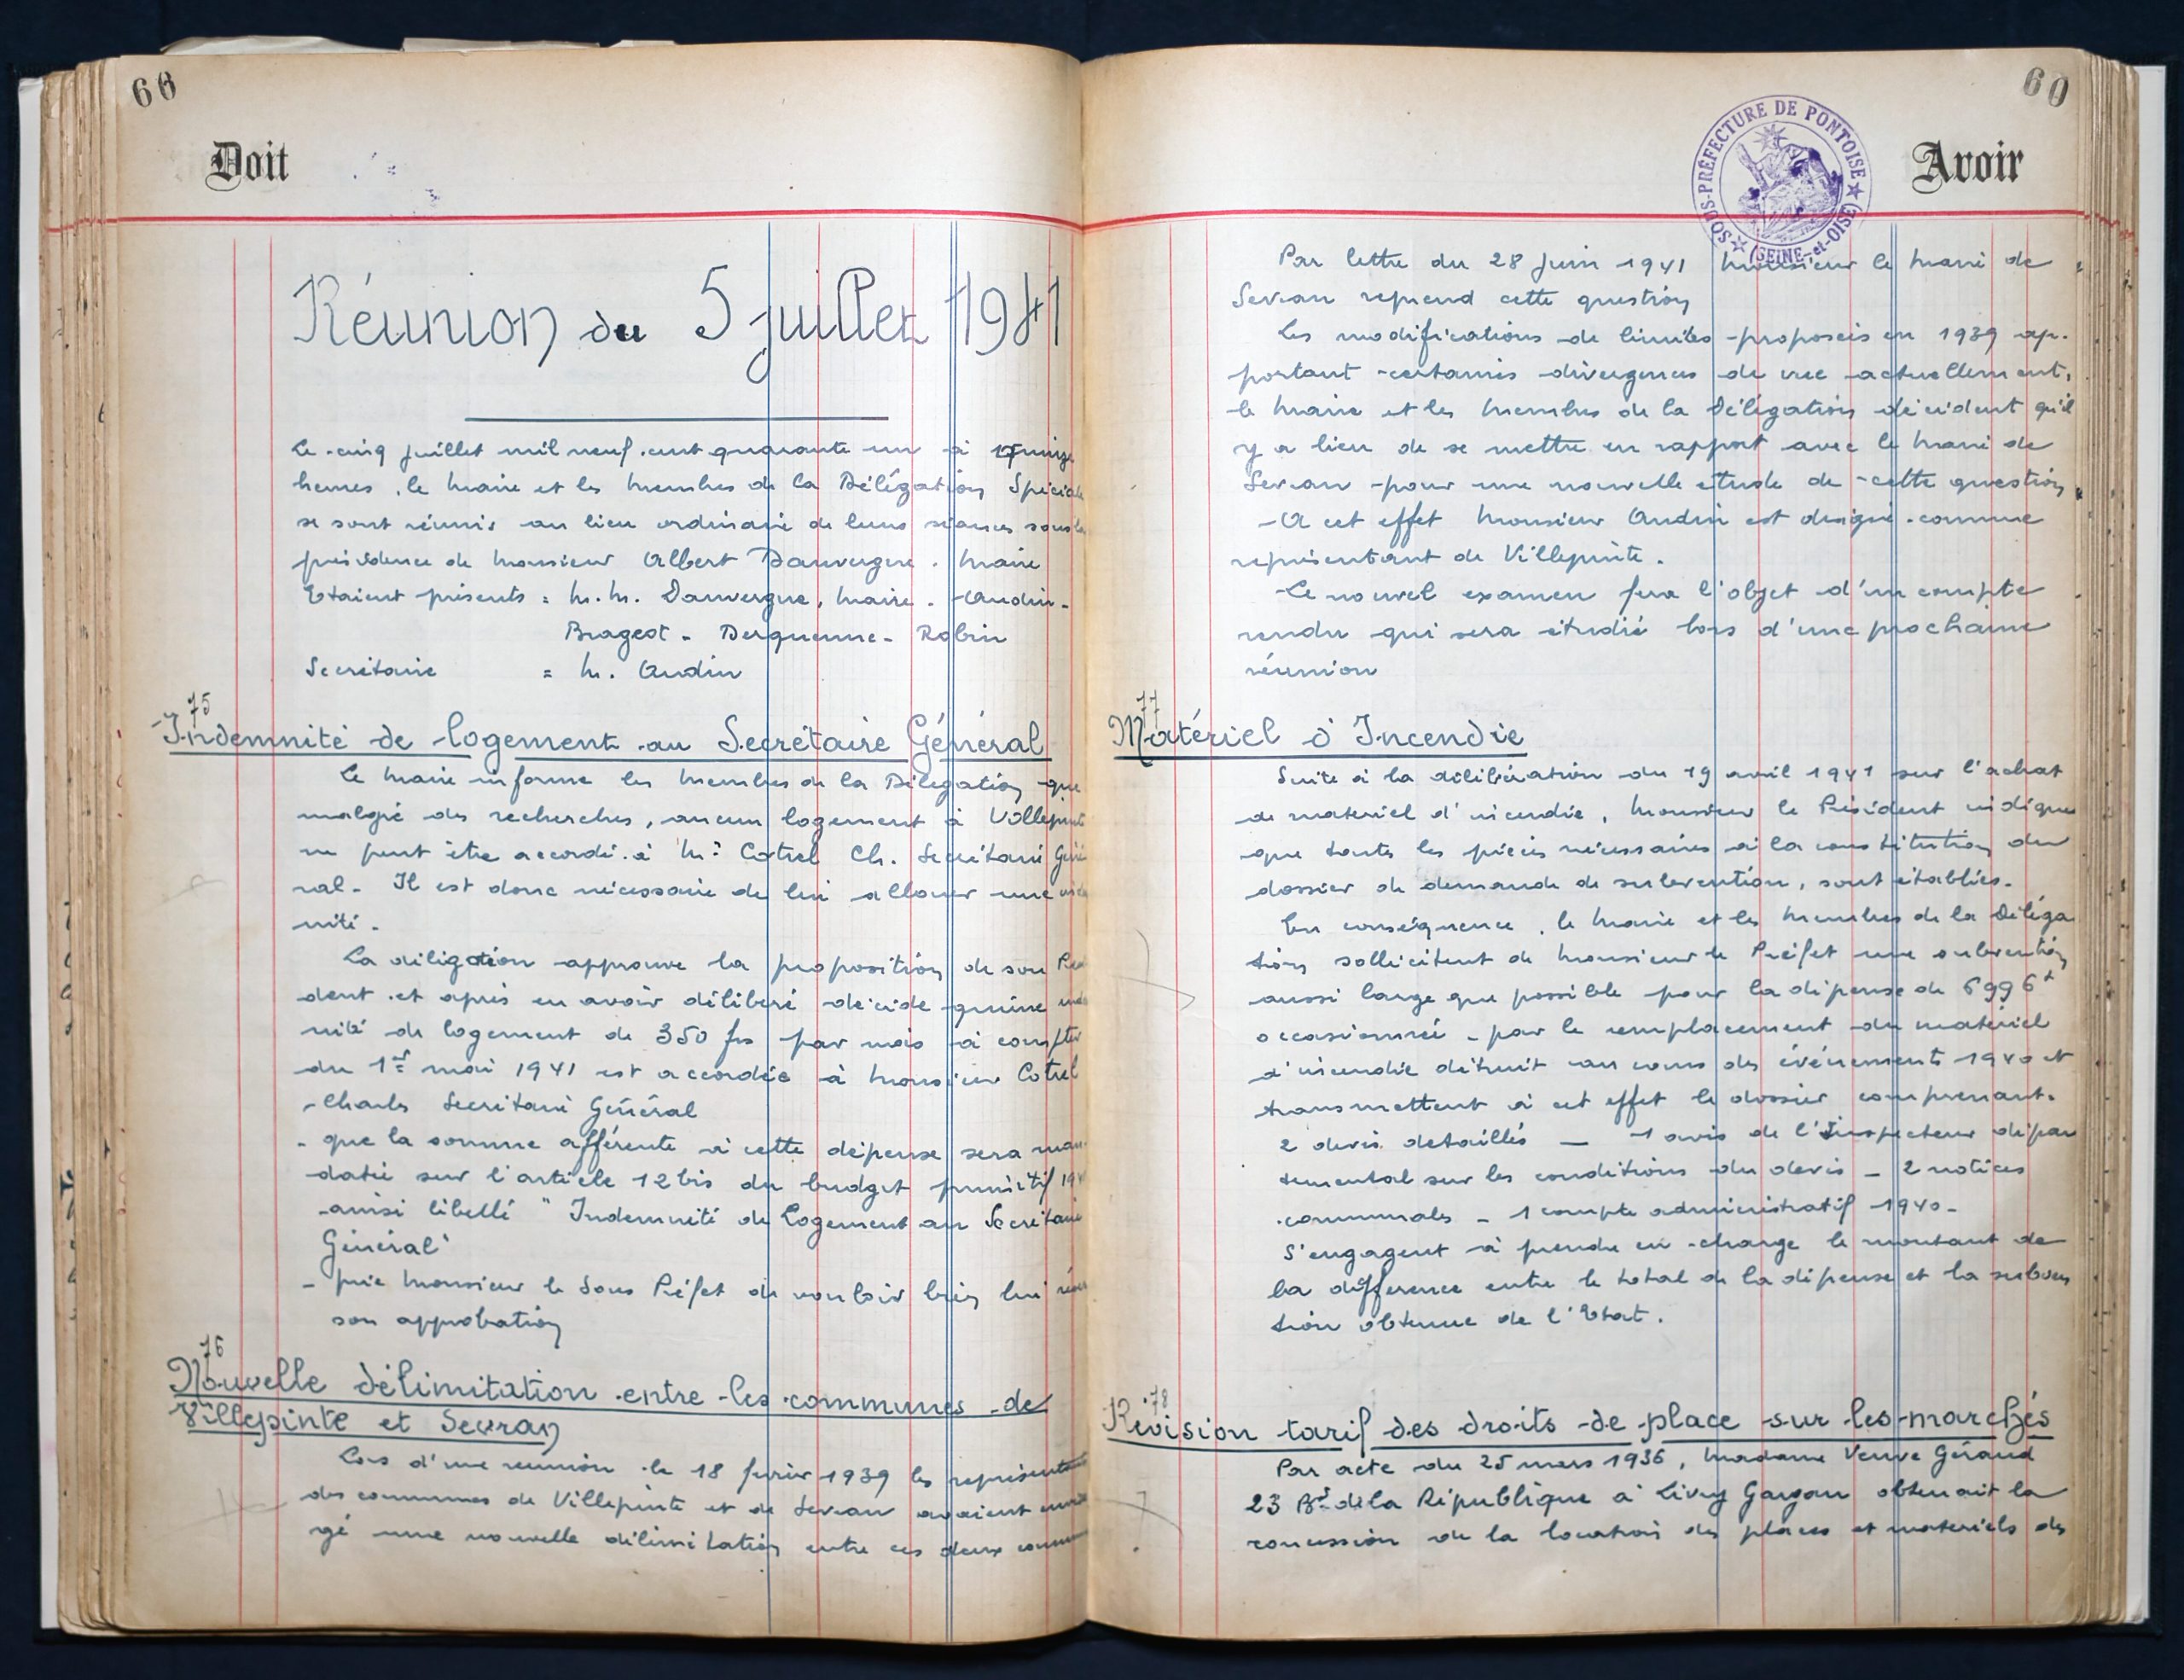 60
Doit
Réunion du 5 juillet 1941
Le cinq juillet mil neuf cent quarante un à
heures, le Maire et les Membres de la Délégation Spéciale
se sont réunis au lieu ordinaire de leurs séances sous la
présidence de Monsieur Albert Dauvergne. Maire
Etaient présents = M.M. Dauvergne, Maire. Audin-
Brageot - Derquenne - Robin
Secrétaire = M. Audin
75
Indemnité de logement au Secrétaire Général
Le Maire informe les Membres de la Délégation que
malgré des recherches, aucun logement à Villepinte
ne peut être accordé à Mr Cotrel Ch. Secrétaire Géné
ral - Il est donc nécessaire de lui allouer une
nité.
La délégation approuve la proposition de son
dent et après en avoir délibéré décide qu'une
nité de logement de 350 frs par mois à compter
du 1er mai 1941 est accordée à Monsieur Cotrel
Charles Secrétaire Général
- que la somme afférente à cette dépense sera man
datée sur l'article 12 bis du budget primitif 194
ainsi libellé " Indemnité de Logement au Secrétaire
Général"
- prie Monsieur le Sous Préfet de vouloir bien lui
son approbation
76
Nouvelle délimitation entre les communes de
Villepinte et Sevran
Lors d'une réunion le 18 février 1939 les représentants
des communes de Villepinte et de Sevran avaient
gé une nouvelle délimitation entre ces deux
60
Avoir
SOUS-PRÉFECTURE DE PONTOISE
(SEINE-et-OISE)
Par lettre du 28 Juin 1941 Monsieur le Maire de
Sevran reprend cette question
Les modifications de limites proposées en 1939 ap-
portant certaines divergences de vue actuellement,
le Maire et les Membres de la Délégation décident qu'il
y a lieu de se mettre en rapport avec le Maire de
Sevran pour une nouvelle étude de cette question
A cet effet Monsieur Audin est désigné comme
représentant de Villepinte.
Le nouvel examen fera l'objet d'un compte
rendu qui sera étudié lors d'une prochaine
réunion
77
Matériel d'Incendie
Suite à la délibération du 19 avril 1941 sur l'achat
de matériel d'incendie, Monsieur le Président indique
que toutes les pièces nécessaires à la constitution du
dossier de demande de subvention, sont établies.
En conséquence, le Maire et les Membres de la Déléga
tion sollicitent de Monsieur le Préfet une subvention
aussi large que possible pour la dépense de 6996f
occasionnée par le remplacement du matériel
d'incendie détruit au cours des événements 1940 et
transmettent à cet effet le dossier comprenant.
2 devis détaillés — 1 avis de l'Inspecteur dépar
temental sur les conditions du devis — 2 notices
communales — 1 compte administratif 1940-
S'engagent à prendre en charge le montant de
la différence entre le total de la dépense et la subven
tion obtenue de l'Etat.
78
Révision tarif des droits de place sur les marchés
Par acte du 25 mars 1936, Madame Veuve Géraud
23 Bd de la République à Livry Gargan obtenait la
concession de la location des places et matériels des